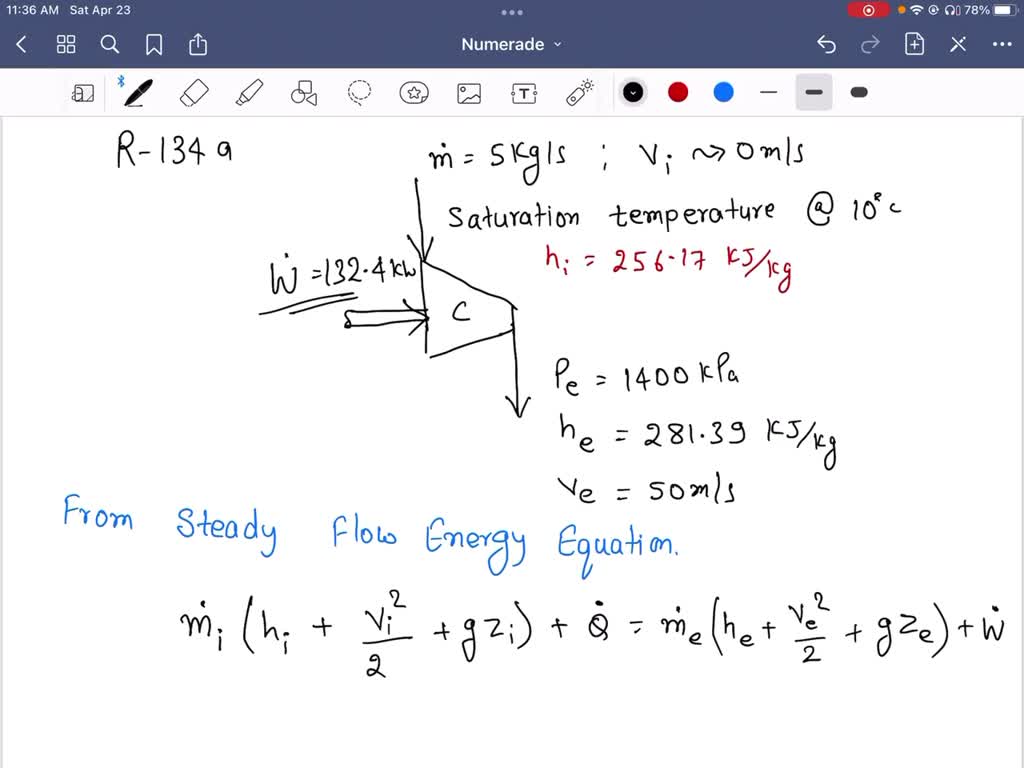 11:36 AM Sat Apr 23
78%
Numerade
R-134 a
ṁ = 5 Kg/s ; Vᵢ ~> 0 m/s
Saturation temperature @ 10°c
hᵢ = 256.17 KJ/kg
Ẇ = 132.4 kW
C
Pe = 1400 kPa
he = 281.39 KJ/kg
Ve = 50 m/s
From Steady Flow Energy Equation.
ṁᵢ (hᵢ + Vᵢ²/2 + gZᵢ) + Q̇ = ṁe (he + Ve²/2 + gZe) + Ẇ